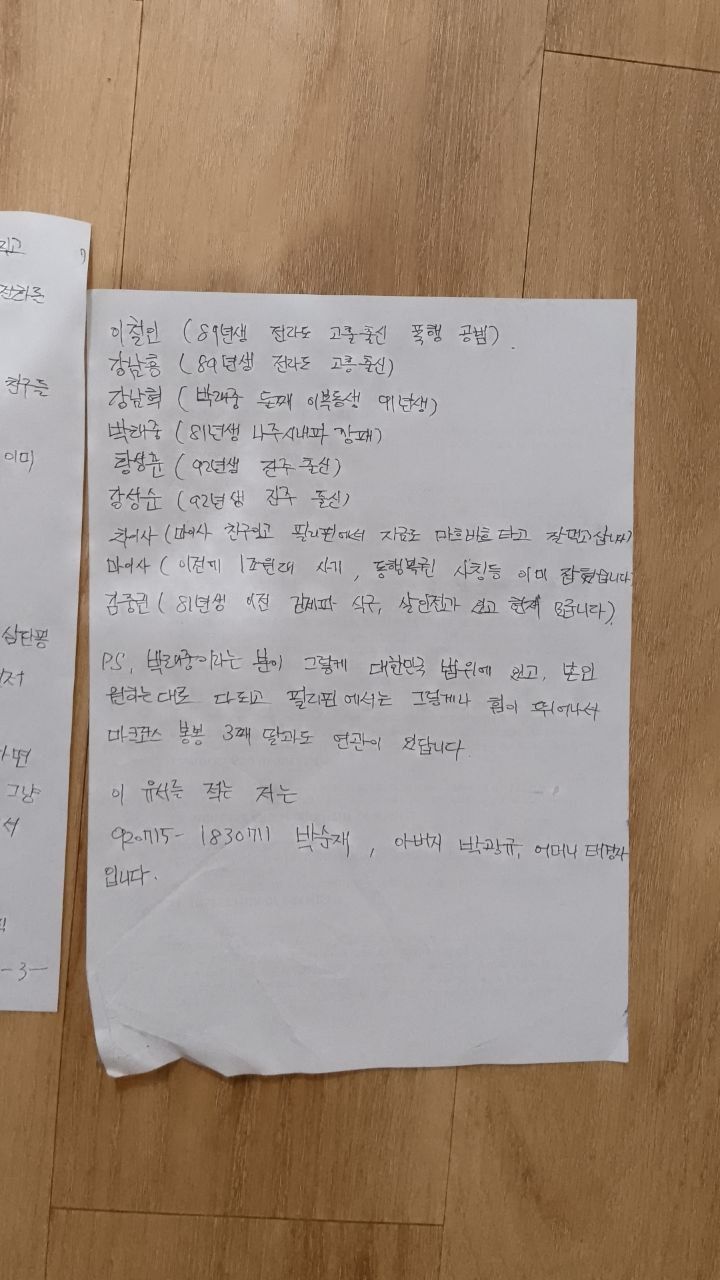 전화를
친구들
이미
삼단봉
그냥
서
-3-
이철인 (89년생 전라도 고흥출신 폭행 공범).
강남흥 (89년생 전라도 고흥출신)
강남혁 (박래중 둘째 이복동생 91년생)
박래중 (81년생 나주시내파 깡패)
황성준 (92년생 전주 출신)
강성순 (92년생 전주 출신)
(마이사 친구이고 필리핀에서 지금도 마흐바흐 타고 잘먹고삽니다)
마이사 (이전에 1조원대 사기, 동행복권 사칭등 이미 잡혔습니다)
김중권 (81년생 이전 김제파 식구, 살인전과 있고 현재 B급니다).
P.S, 박래중이라는 분이 그렇게 대한민국 범위에 있고, 본인
원하는대로 다되고 필리핀에서는 그렇게나 힘이 뛰어나서
마크코스 봉봉 3째 딸과도 연관이 있답니다.
이 유서를 적는 저는
920715- 1830711 박수재, 아버지 박광규, 어머니 태경자
입니다.